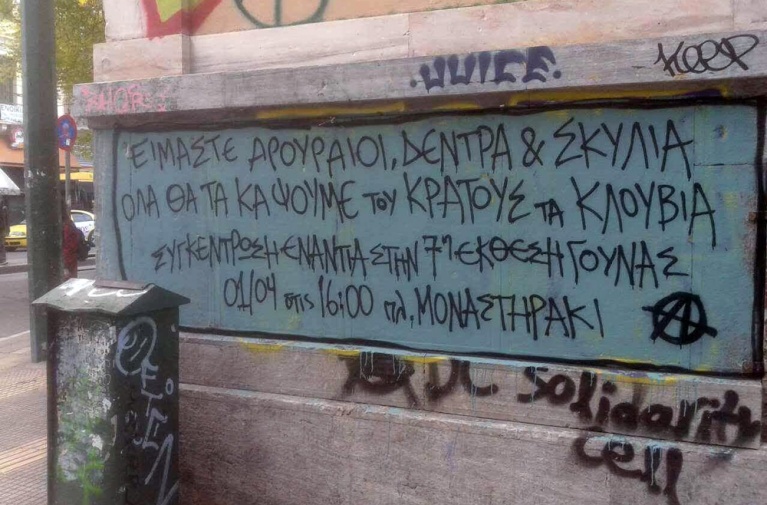 JUICE.
KEEP
ΕΙΜΑΣΤΕ ΑΡΟΥΡΑΙΟΙ, ΔΕΝΤΡΑ & ΣΚΥΛΙΑ
ΟΛΑ ΘΑ ΤΑ ΚΑΨΟΥΜΕ ΤΟΥ ΚΡΑΤΟΥΣ ΤΑ ΚΛΟΥΒΙΑ
ΣΥΓΚΕΝΤΡΩΣΗ ΕΝΑΝΤΙΑ ΣΤΗΝ 7η ΕΚΘΕΣΗ ΓΟΥΝΑΣ
01/04 στις 16:00 πλ. ΜΟΝΑΣΤΗΡΑΚΙ
DC Solidarity
cell